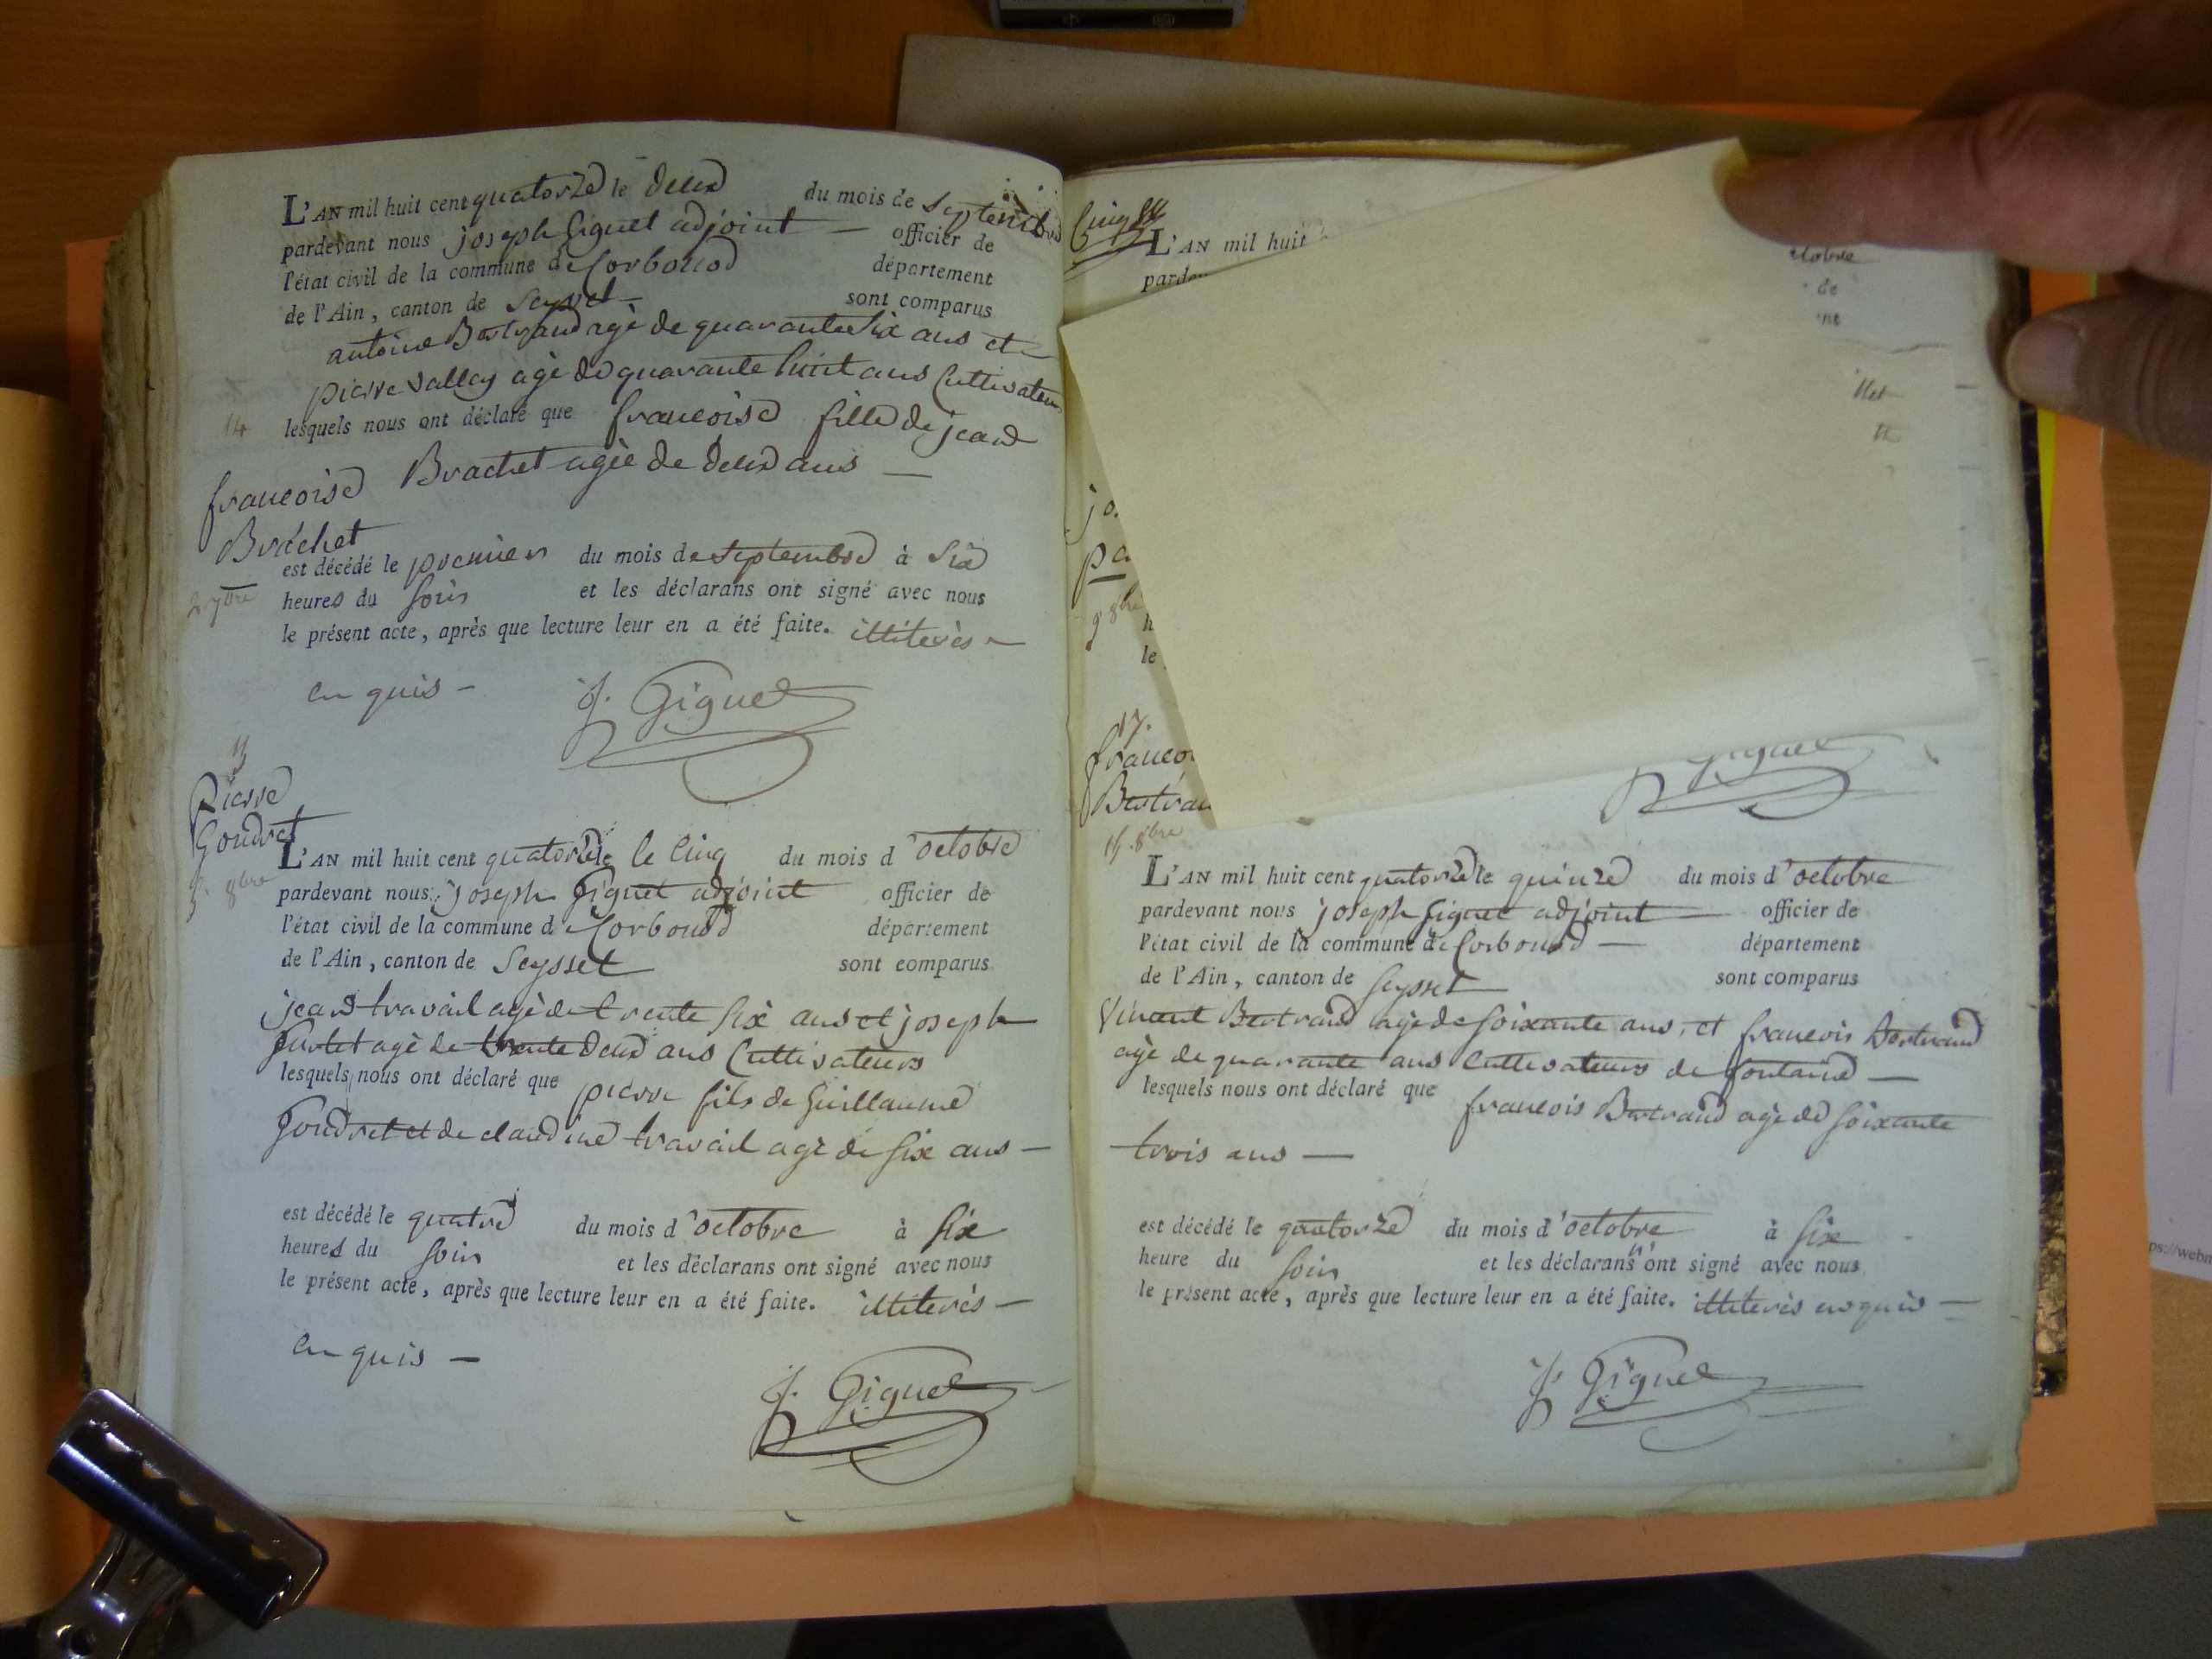 L'AN mil huit cent quatorze le deux du mois de septembre
pardevant nous joseph Giguet adjoint — officier de
l'état civil de la commune de Corbonod département
de l'Ain, canton de Seyssel — sont comparus
antoine Bertrand agé de quarante six ans et
pierre valley agé de quarante huit ans Cultivateurs
14 lesquels nous ont déclaré que francoise fille de jean
francoise Brachet agée de deux ans —
Brachet
est décédé le premier du mois de septembre à six
2 7bre heures du soir et les déclarans ont signé avec nous
le présent acte, après que lecture leur en a été faite. illiterés
en quis —
J. Giguet
Pierre
Gondret
L'AN mil huit cent quatorze le cinq du mois d'octobre
5. 8bre pardevant nous joseph Giguet adjoint officier de
l'état civil de la commune de Corbonod département
de l'Ain, canton de Seyssel sont comparus
jean travail agé de trente six ans et joseph
agé de trente deux ans Cultivateurs
lesquels nous ont déclaré que pierre fils de Guillaume
Gondret et de claudine travail agé de six ans —
est décédé le quatre du mois d'octobre à six
heures du soir et les déclarans ont signé avec nous
le présent acte, après que lecture leur en a été faite. illiterés —
en quis —
J. Giguet
L'AN mil huit
octobre
de
jo.
9 8bre
le
17.
francoi
Bertran
15. 8bre
Giguet
L'AN mil huit cent quatorze le quinze du mois d'octobre
pardevant nous joseph Giguet adjoint — officier de
l'état civil de la commune de Corbonod — département
de l'Ain, canton de Seyssel sont comparus
Vincent Bertrand agé de soixante ans, et francois Bertrand
agé de quarante ans Cultivateurs de fontaine —
lesquels nous ont déclaré que francois Bertrand agé de soixante
trois ans —
est décédé le quatorze du mois d'octobre à six
heure du soir et les déclarans ont signé avec nous
le présent acte, après que lecture leur en a été faite. illiterés enquis —
J. Giguet